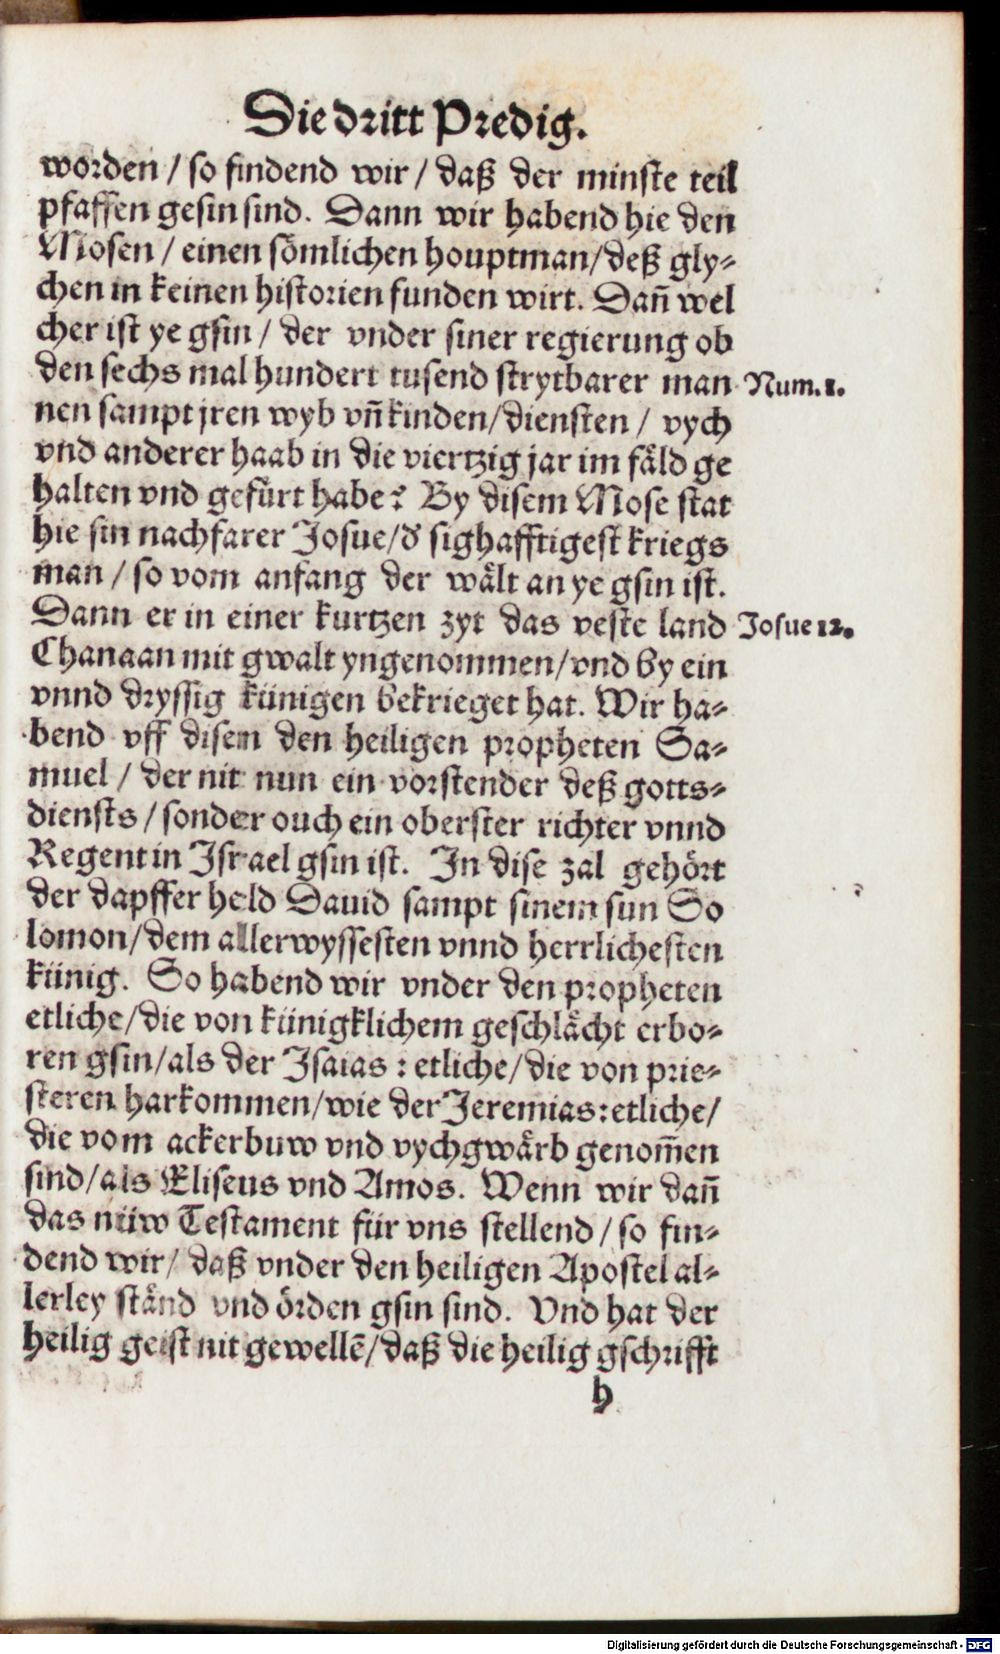 Die dritt Predig.
worden / so findend wir / daß der minste teil
pfaffen gesin sind. Dann wir habend hie den
Mosen / einen sömlichen houptman/deß gly⸗
chen in keinen historien funden wirt. Dañ wel
cher ist ye gsin / der vnder siner regierung ob
den sechs mal hundert tusend strytbarer man Num. 1.
nen sampt jren wyb vñ kinden/diensten / vych
vnd anderer haab in die viertzig jar im fäld ge
halten vnd gefürt habe? By disem Mose stat
hie sin nachfarer Josue/d̕ sighafftigest kriegs
man / so vom anfang der wält an ye gsin ist.
Dann er in einer kurtzen zyt das veste land Josue 12.
Chanaan mit gwalt yngenommen/vnd by ein
vnnd dryssig künigen bekrieget hat. Wir ha⸗
bend vff disem den heiligen propheten Sa⸗
muel / der nit nun ein vorstender deß gotts⸗
diensts / sonder ouch ein oberster richter vnnd
Regent in Israel gsin ist. In dise zal gehört
der dapffer held Dauid sampt sinem sun So
lomon/dem allerwyssesten vnnd herrlichesten
künig. So habend wir vnder den propheten
etliche/die von künigklichem geschlächt erbo⸗
ren gsin/als der Isaias : etliche/die von prie⸗
steren harkommen/wie der Jeremias:etliche/
die vom ackerbuw vnd vychgwärb genom̃en
sind/als Eliseus vnd Amos. Wenn wir dañ
das nüw Testament für vns stellend / so fin⸗
dend wir/ daß vnder den heiligen Apostel al⸗
lerley ständ vnd örden gsin sind. Vnd hat der
heilig geist nit gewellẽ/daß die heilig gschrifft
h
Digitalisierung gefördert durch die Deutsche Forschungsgemeinschaft - DFG